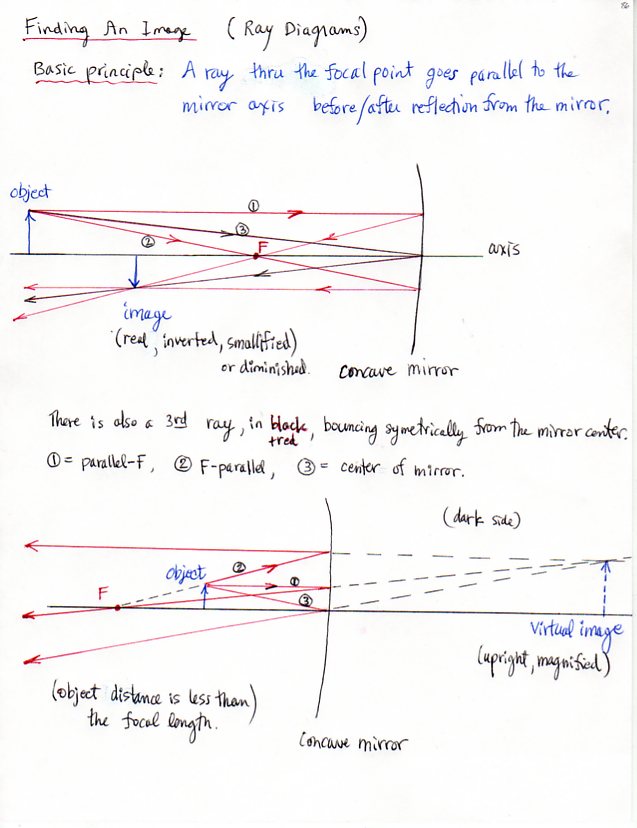 86
Finding An Image (Ray Diagrams)
Basic principle: A ray thru the focal point goes parallel to the
mirror axis before/after reflection from the mirror.
object
①
②
③
F
axis
image
(real, inverted, smallified)
or diminished.
concave mirror
There is also a 3rd ray, in black, bouncing symetrically from the mirror center.
+red
① = parallel-F, ② F-parallel, ③ = center of mirror.
(dark side)
object
②
①
F
③
Virtual image
(upright, magnified)
(object distance is less than)
the focal length.
concave mirror